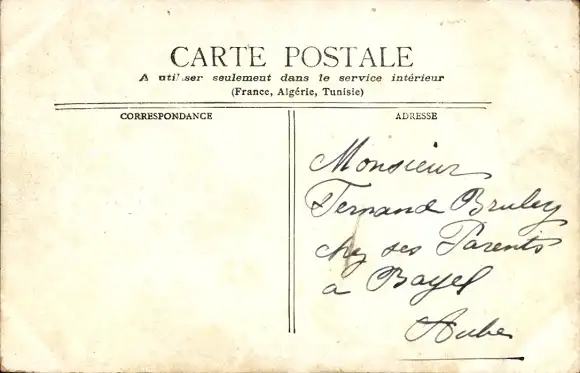 CARTE POSTALE
A utiliser seulement dans le service intérieur
(France, Algérie, Tunisie)
CORRESPONDANCE
ADRESSE
Monsieur
Fernand Bruley
chez ses Parents
a Bayel
Aube